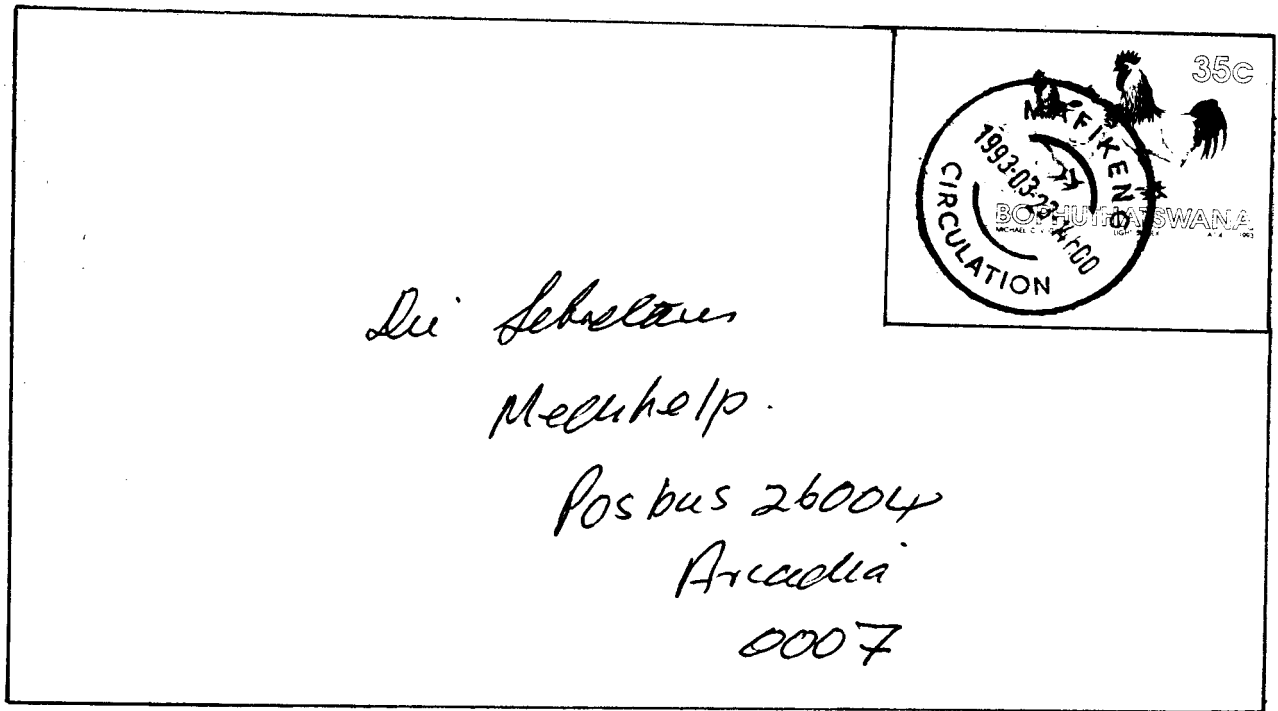 35c
MAFIKENG
1993-03-23-14:00
CIRCULATION
BOPHUTHATSWANA
1993
Die Sekretaris
Medihelp.
Posbus 26004
Arcadia
0007